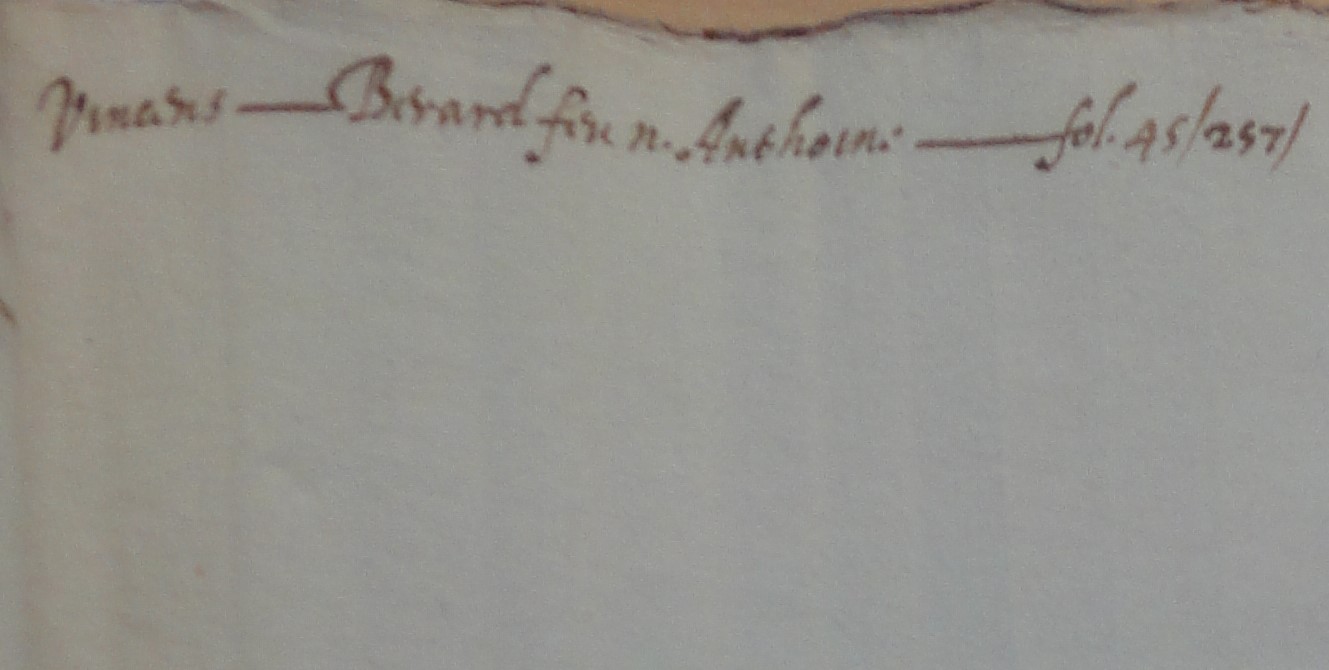 Vinados — Berard feu n. Anthoin: — fol. 45/257/